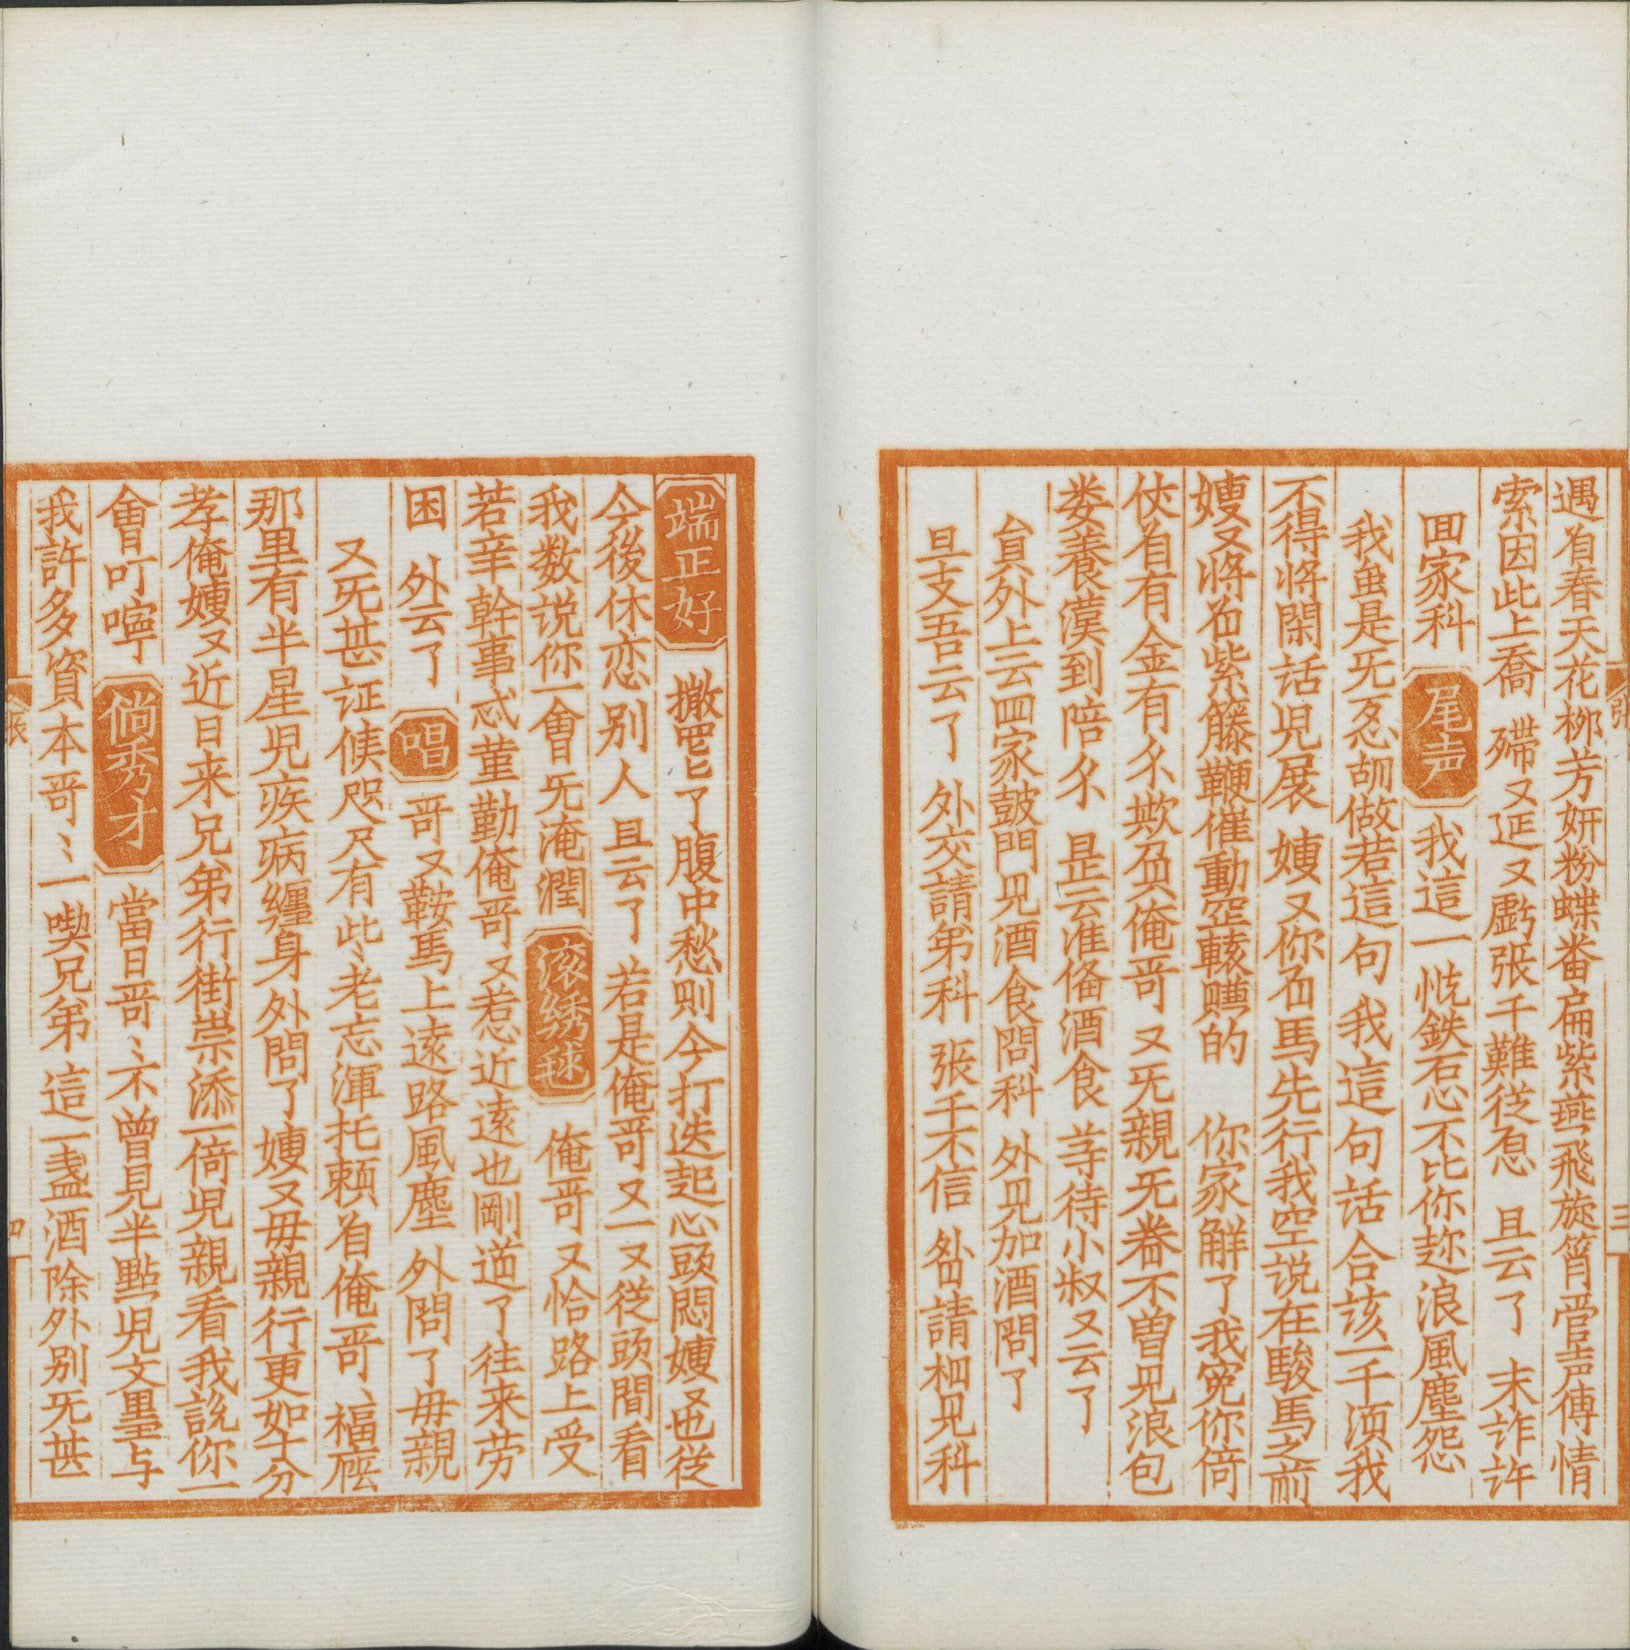 遇着春天花柳芳妍粉蝶番扁紫燕飛旋筲管声傳情
索因此上喬 殢又迋又虧張千難從怠 旦云了 末詐許
囬家科 尾声 我這一 㤼鉄石心不比你趂浪風塵怨
我虽是无忍胡做若這句 我這句話合該一千湏我
不得將閑話児展 嫂又你在馬先行我空説在駿馬之前
嫂又將右紫籐鞭催動𦊱轅赚的 你家解了我寃你倚
伩着有金有尒欺負俺哥又无親无眷不曽見浪包
娄養漢到陪尒 旦云准俻酒食 等待小叔又云了
貟外上云囬家敲門見酒食問科 外見加酒問了
旦支吾云了 外交請弟科 張千不信 外請相見科
端正好 撇罷了腹中愁則今打迭起心頭悶嫂又也從
今後休恋别人 旦云了 若是俺哥又一又從頭間看
我数说你一會无淹潤 滚绣毬 俺哥又恰路上受
若辛幹事忒菫勤俺哥又惹近逺也剛道了往来劳
困 外云了 唱 哥又鞍馬上逺路風塵 外問了母親
又无甚証候咫尺有此〻老忘渾托頼着俺哥〻福廕
那里有半星児疾病纏身 外問了嫂又母親行更如十分
孝俺嫂又近日来兄弟行街崇添一倍児親看我説你一
會叮嚀 倘秀才 當日哥〻不曾見半點児文墨与
我許多資本哥〻一喫兄弟這一盞酒除外别无甚
張
三
張
四